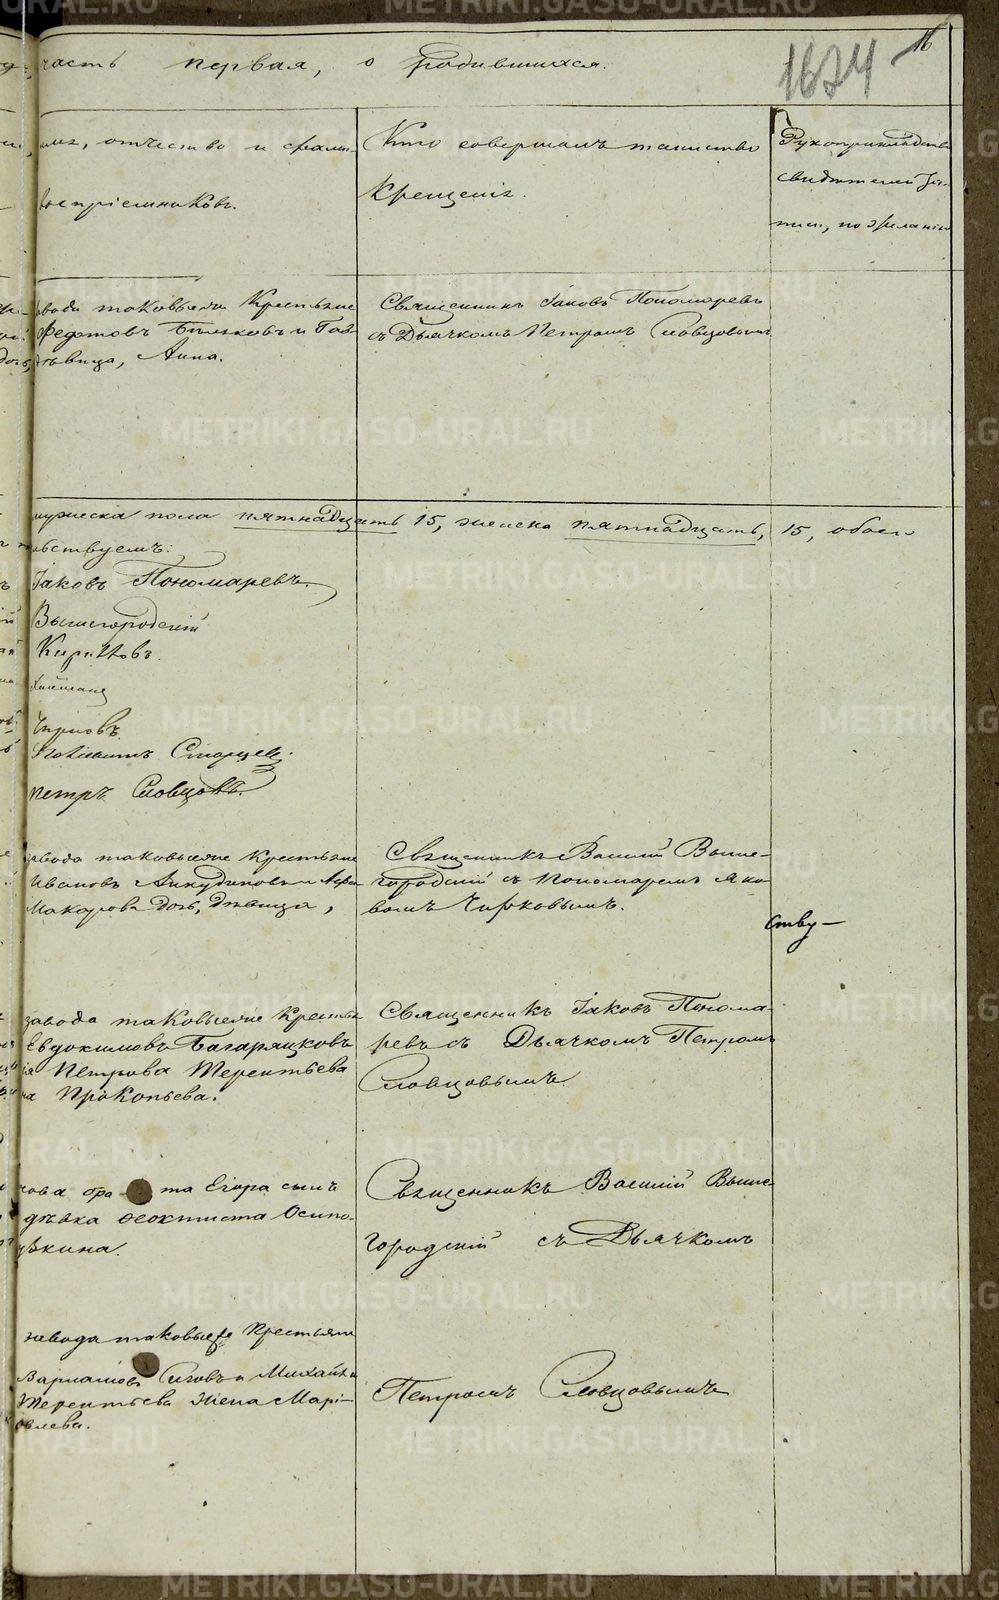 часть первая, о родившихся.
16
1674
имя, отчество и фами-
воспріемниковъ.
Кто совершалъ таинство
Крещенія.
Рукоприкладство
свидѣтелей за-
писи, по желанію
завода таковыеже Крестьяне
Федотовъ Бычковъ и Гав-
дѣвица, Анна.
Священникъ Іаковъ Пономаревъ
съ Дьячкомъ Петромъ Словцовымъ
мужеска пола пятнадцать 15, женска пятнадцать, 15, обоего
Іаковъ Пономаревъ.
Вышегородскій
Кирилловъ.
Чирковъ
Старцев
Петръ Словцовъ.
завода таковыеже Крестьяне
Ивановъ Анкудиновъ и
Макарова дочь, дѣвица,
Священникъ Василій Выше-
городскій съ пономаремъ Яко-
вомъ Чирковымъ.
ству-
завода таковыеже Крестьян
Евдокимовъ Багаряцковъ
Петрова Терентьева
Прокопьева.
Священникъ Іаковъ Понома-
ревъ съ Дьячкомъ Петромъ
Словцовымъ.
Егора сынъ
дѣвка Феоктиста Осипо-
Священникъ Василій Выше-
городскій съ Дьячкомъ
завода таковыеже Крестьяне
Варламовъ Сиговъ и Михайла
Терентьева жена Марі-
Петромъ Словцовымъ
METRIKI.GASO-URAL.RU